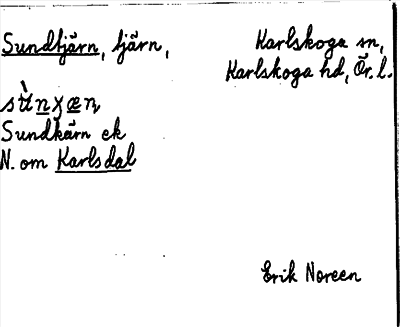 Sundtjärn, tjärn,
Karlskoga sn,
Karlskoga hd, Ör. l.
Sundkärn ek
N. om Karlsdal
Erik Noreen